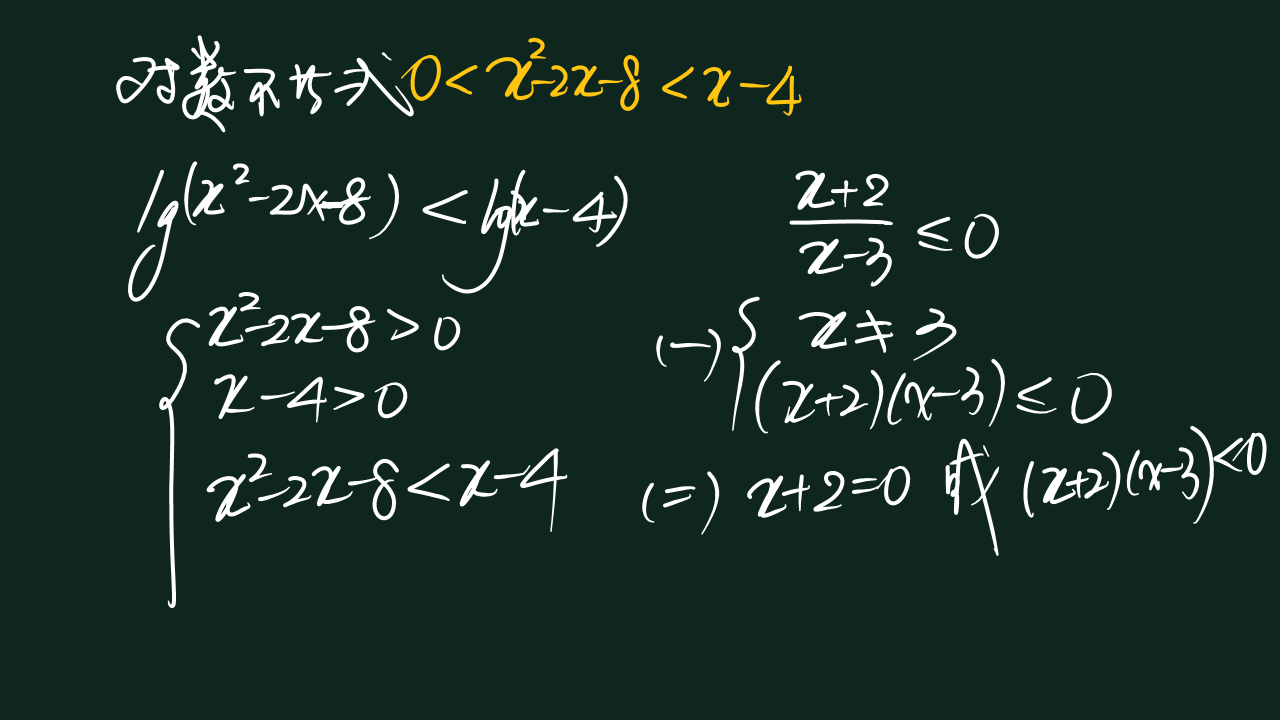 对数不等式 0<x²-2x-8<x-4
lg(x²-2x-8)<lg(x-4)
x²-2x-8>0
x-4>0
x²-2x-8<x-4
x+2/x-3≤0
(一) { x≠3
(x+2)(x-3)≤0
(二) x+2=0 或 (x+2)(x-3)<0